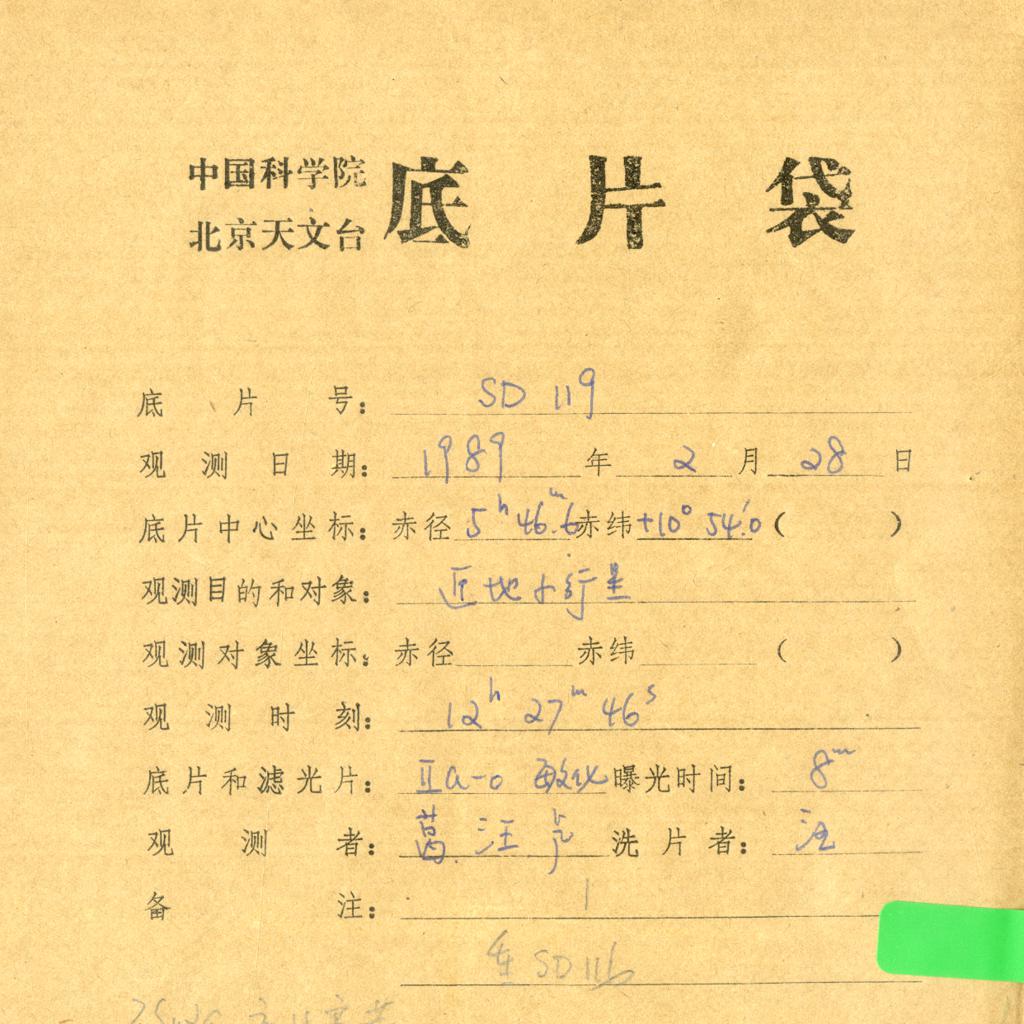 中国科学院
北京天文台
底片袋
底片号: SD 119
观测日期: 1989 年 2 月 28 日
底片中心坐标: 赤径 5ʰ 46ᵐ.6 赤纬 +10° 54'.0 ( )
观测目的和对象: 近地小行星
观测对象坐标: 赤径 赤纬 ( )
观测时刻: 12ʰ 27ᵐ 46ˢ
底片和滤光片: IIa-o 敏化 曝光时间: 8ᵐ
观测者: 葛 汪 卢 洗片者: 汪
备注: 1
重 SD 116